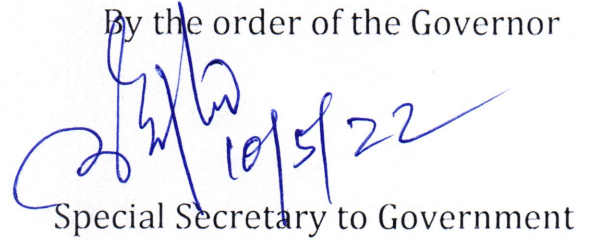 By the order of the Governor
10/5/22
Special Secretary to Government